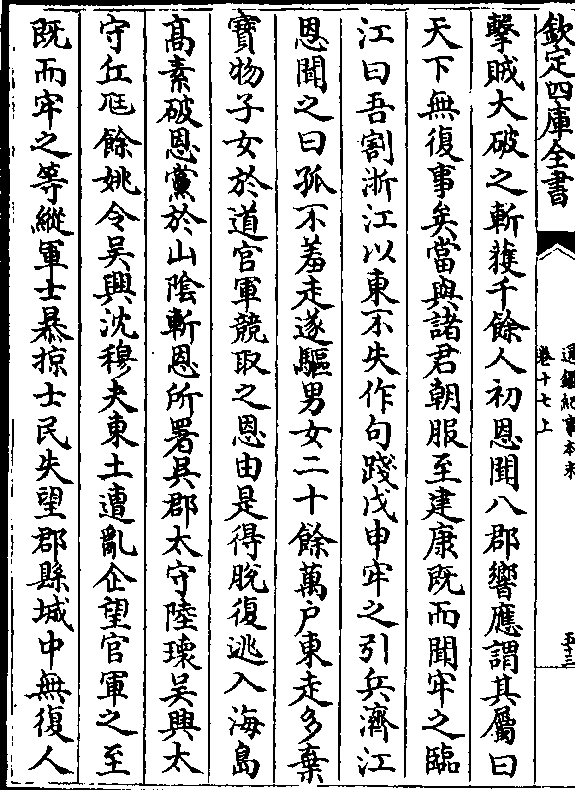 欽定四庫全書
通鑑紀事本末
卷十七上
五十三
擊賊大破之斬獲千餘人初恩聞八郡響應謂其屬曰
天下無復事矣當與諸君朝服至建康既而聞牢之臨
江曰吾割浙江以東不失作句踐戊申牢之引兵濟江
恩聞之曰孤不羞走遂驅男女二十餘萬户東走多棄
寶物子女於道官軍競取之恩由是得脫復逃入海島
高素破恩黨於山陰斬恩所署吳郡太守陸瓌吳興太
守丘尫餘姚令吳興沈穆夫東土遭亂企望官軍之至
既而牢之等縱軍士暴掠士民失望郡縣城中無復人